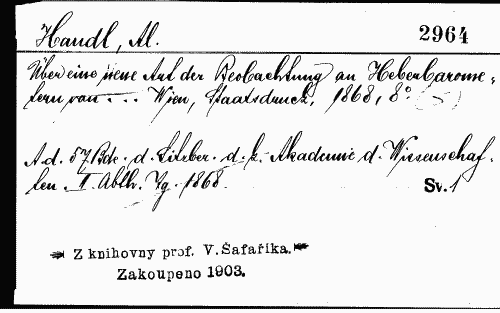 Handl, Al. 2964
Über eine neue Art der Beobachtung an Heberbarome-
tern von ... Wien, Staatsdruck, 1868, 8° (5)
A. d. 57 Bde. d. Sitzber. d. k. Akademie d. Wissenschaf-
ten II. Abth. Jg. 1868. Sv. 1
Z knihovny prof. V. Šafaříka.
Zakoupeno 1903.